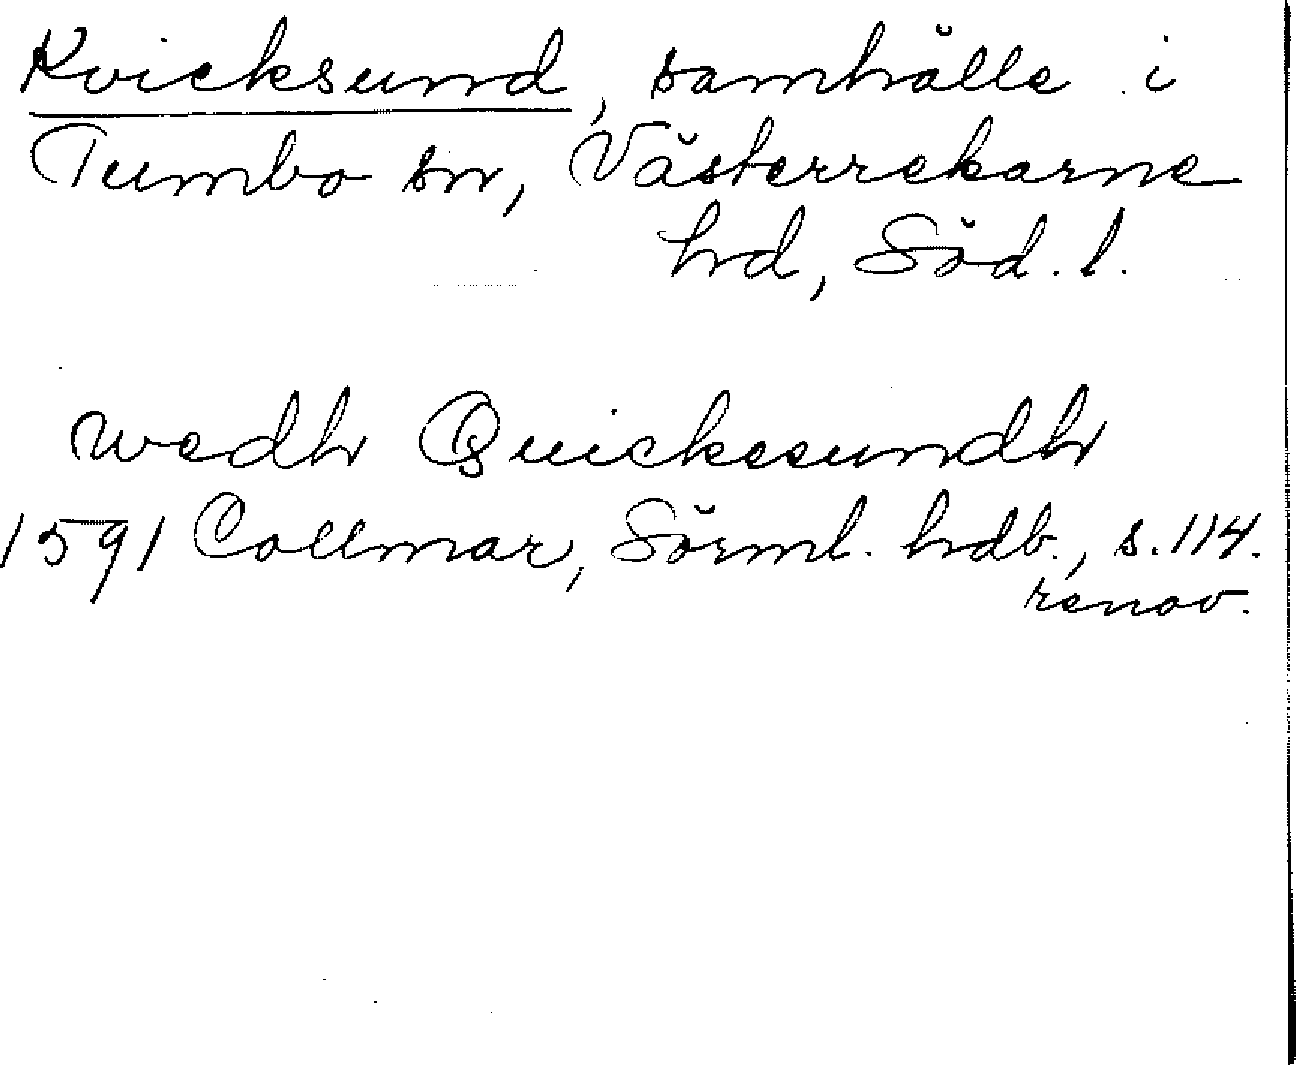 Kvicksund, samhälle i
Tumbo sn, Västerrekarne
hd, Söd. l.
wedh Quickesundh
1591 Collmar, Sörml. hdb., s. 114.
renov.